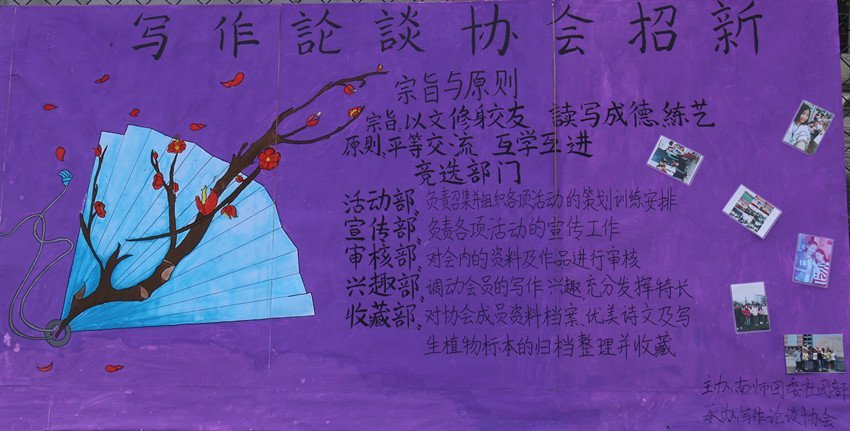 写作論談协会招新
宗旨与原则
宗旨:以文修身交友 读写成德、练艺
原则:平等交流 互学互进
竞选部门
活动部:负责召集并组织各项活动的策划训练安排
宣传部:负责各项活动的宣传工作
审核部:对会内的资料及作品进行审核
兴趣部:调动会员的写作兴趣,充分发挥特长
收藏部:对协会成员资料档案、优美诗文及写
生植物标本的归档整理并收藏
主办:南师团委社团部
承办:写作论谈协会